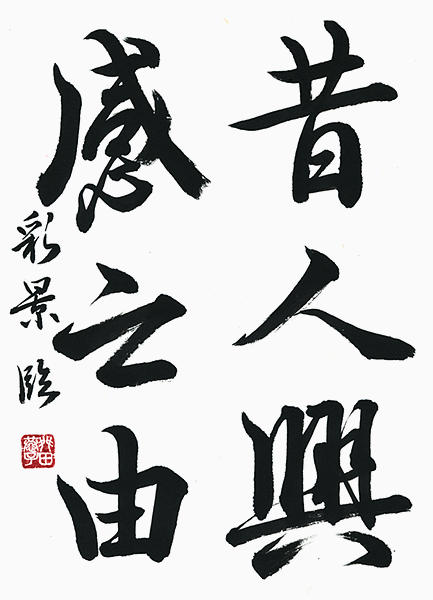 昔人興
感之由
彩景臨